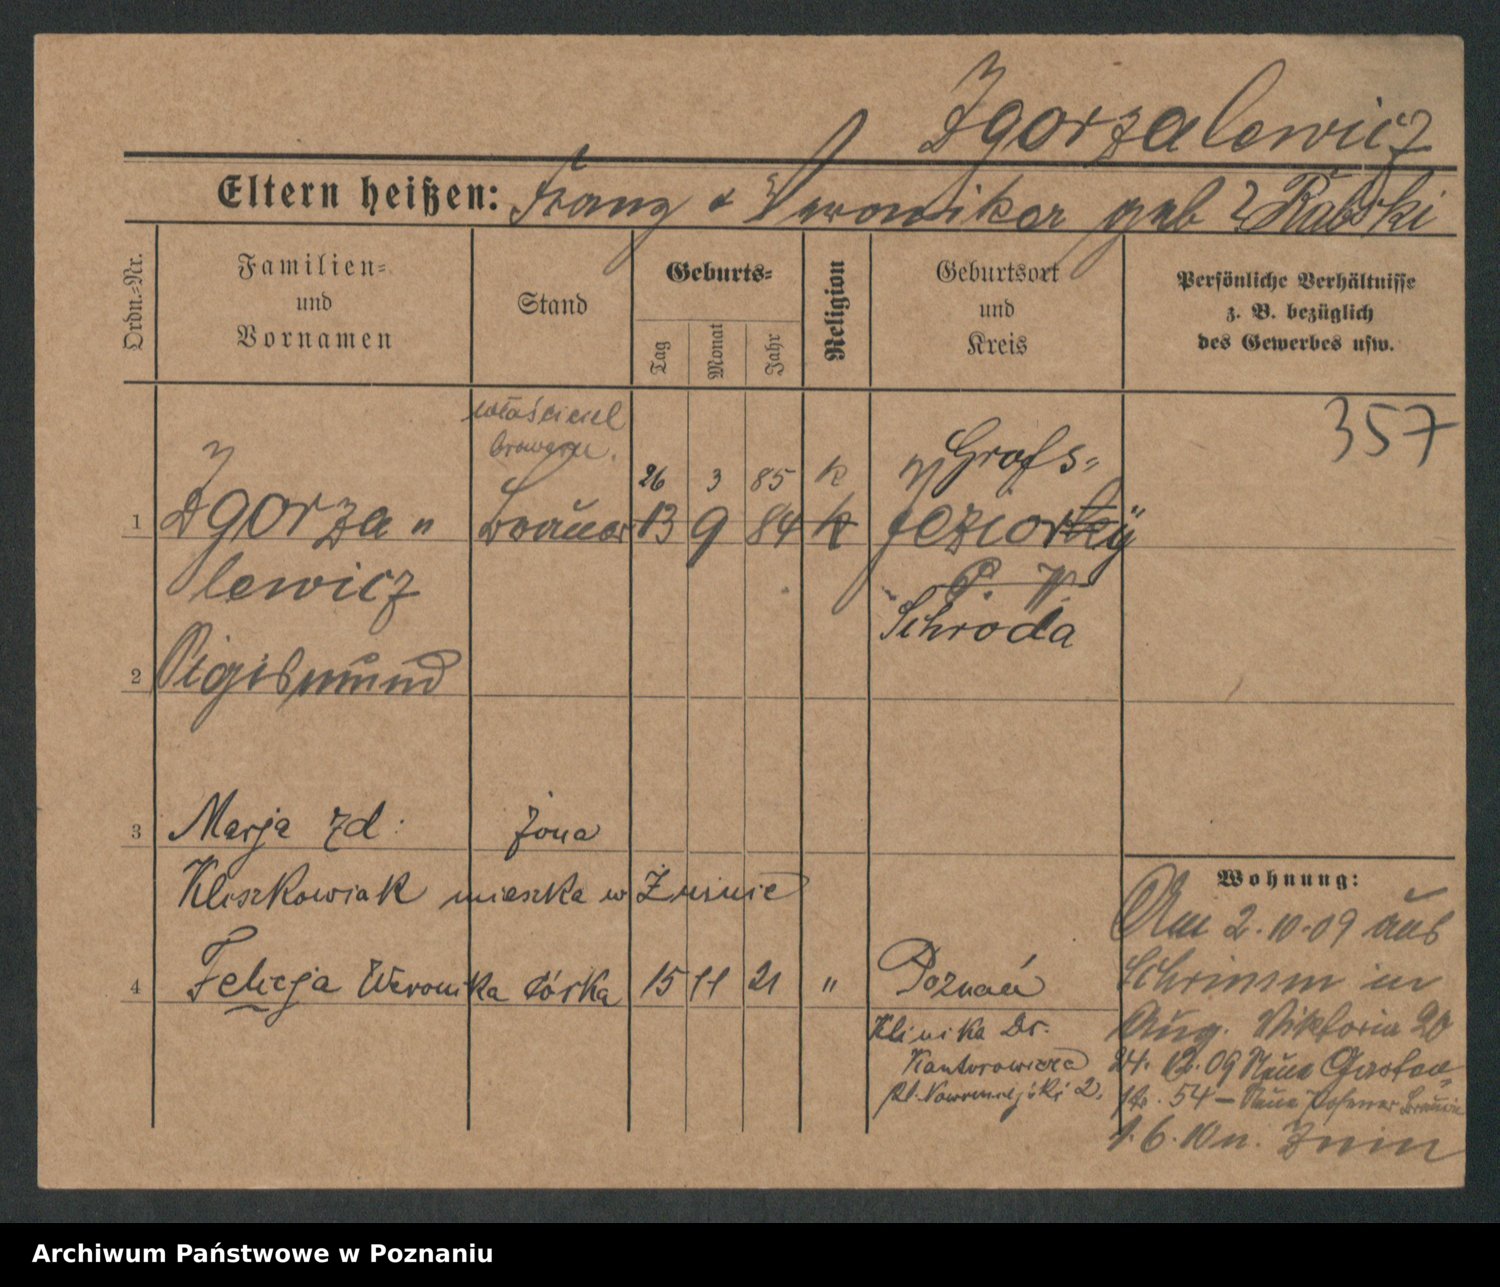 Zgorzalewicz
Eltern heißen: Franz & Veronika geb Rabski
Ordn.-Nr.
Familien- und Vornamen
Stand
Geburts-
Tag
Monat
Jahr
Religion
Geburtsort und Kreis
Persönliche Verhältnisse
z. B. bezüglich
des Gewerbes usw.
357
właściciel
browaru.
26 3 85 k
Grofs-
1 Zgorza- Brauer 13 9 84 k Jeziory
lewicz
P. W.
Schroda
2 Sigismund
3 Marja zd: żona
Kliszkowiak mieszka w Żninie
4 Felicja Weronika córka 15 11 21 " Poznań
Klinika Dr.
Kantorowicza
Pl. Nowomiejski 2.
Wohnung:
Am 2.10.09 aus
Schrimm in
Aug. Viktoria 20
24.12.09 Neue Garten-
str. 54 – Neue Posener Brauerei
1.6.10 n. Znin
Archiwum Państwowe w Poznaniu